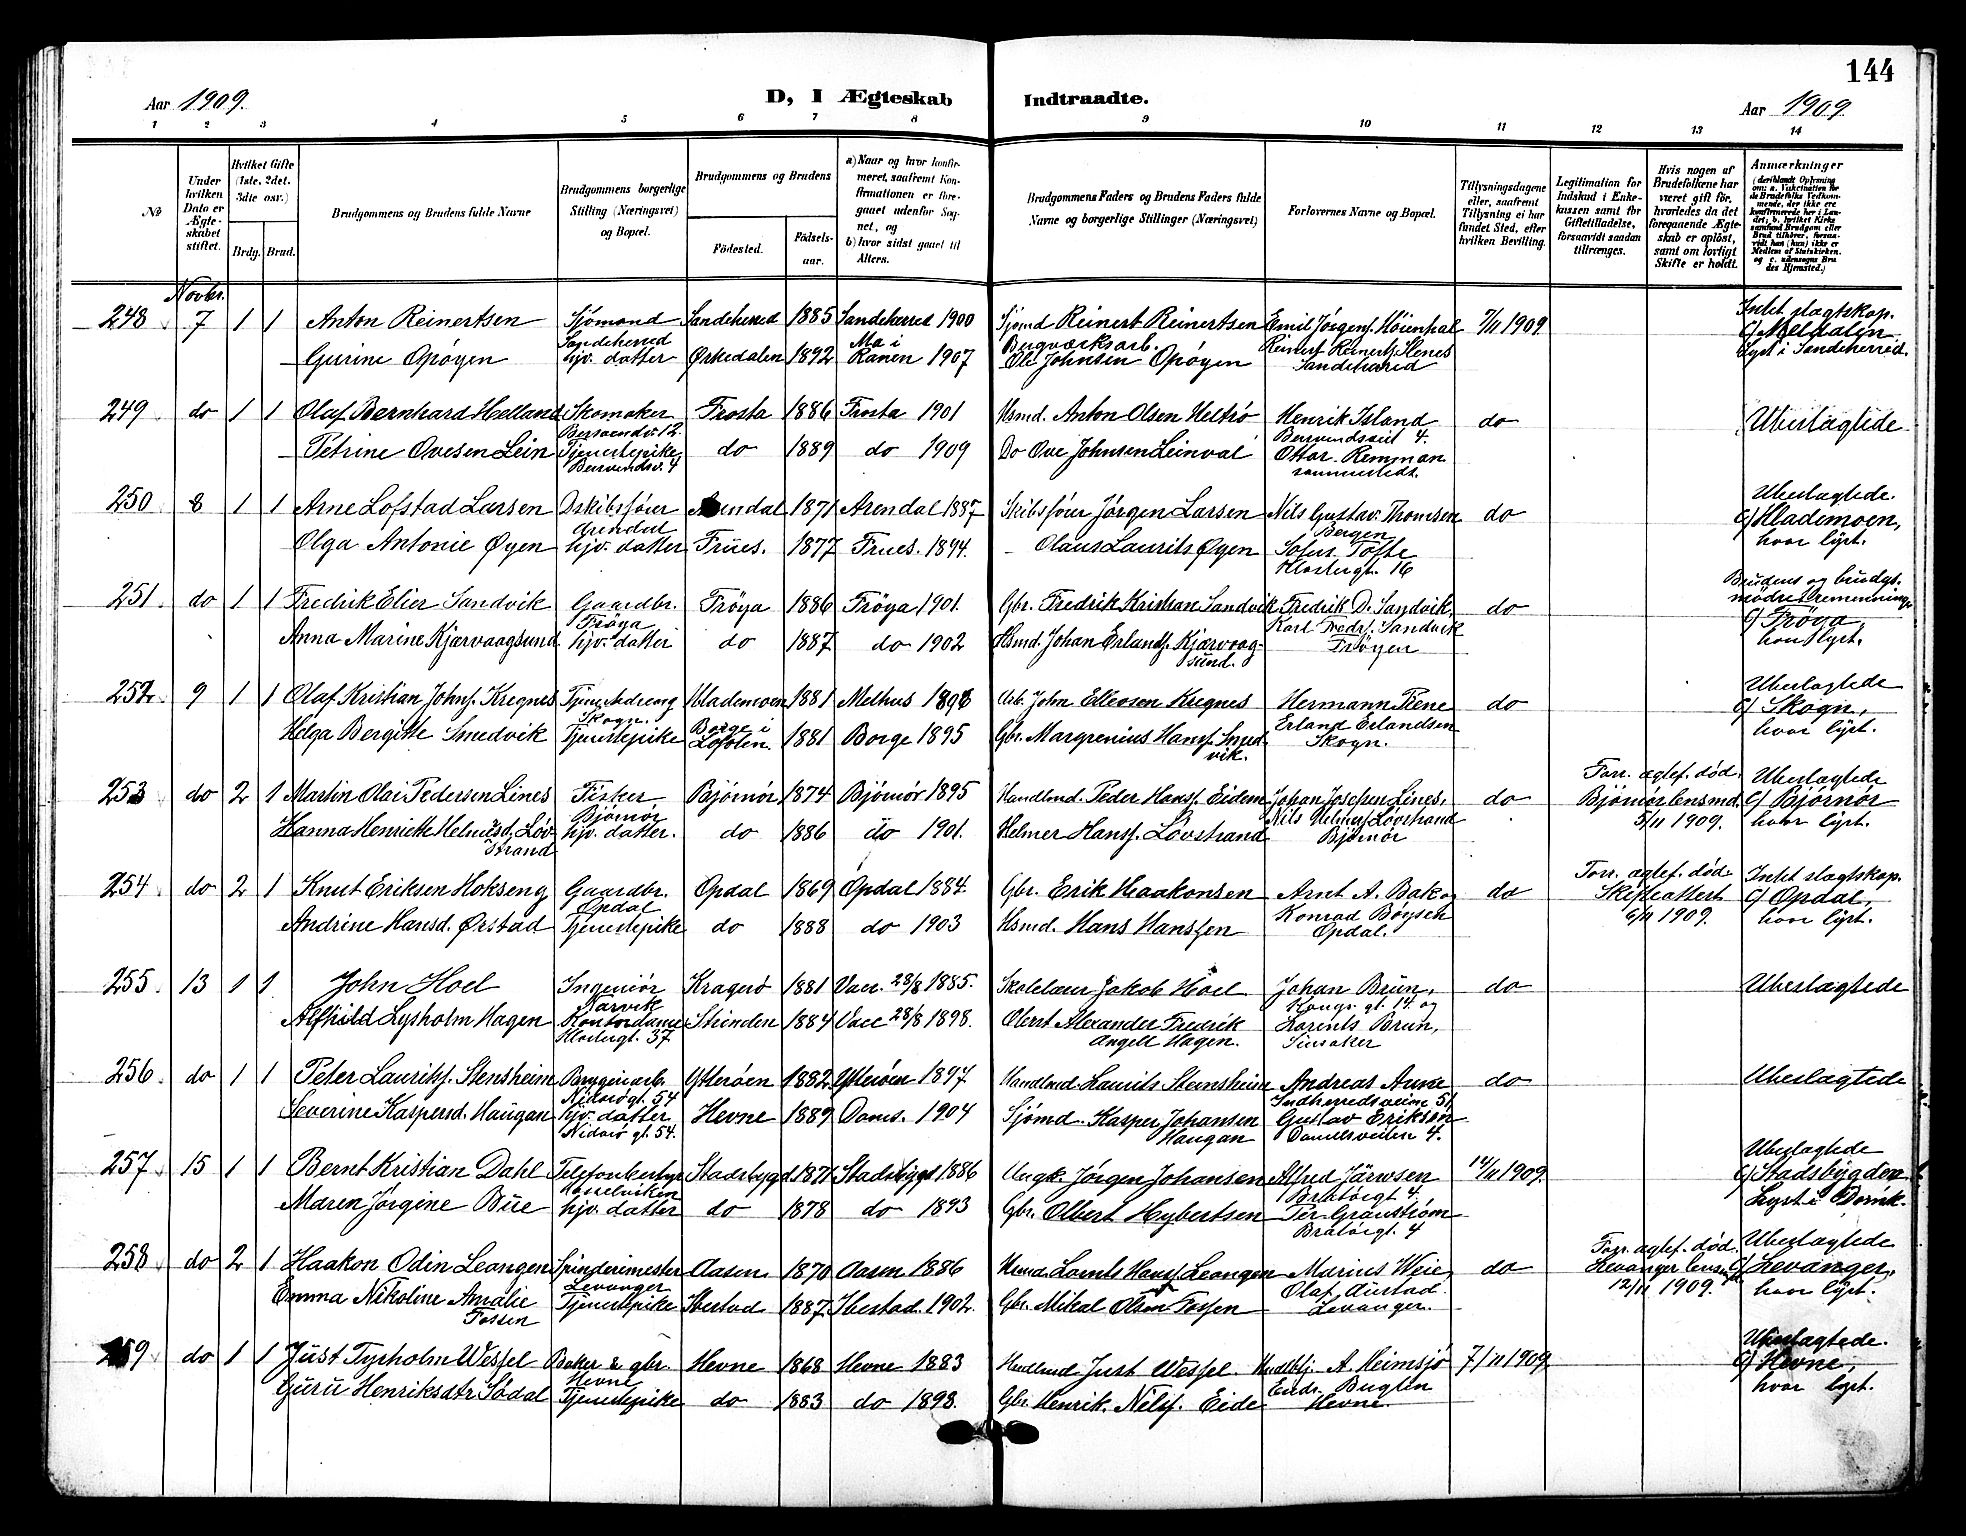 144
Aar 1909.
D, I Ægteskab Indtraadte.
Aar 1909.
1 2 3 4 5 6 7 8 9 10 11 12 13 14
No
Under hvilken Dato er Ægteskabet stiftet.
Hvilket Gifte (1ste, 2det, 3die osv.)
Brdg. Brud.
Brudgommens og Brudens fulde Navne
Brudgommens borgerlige Stilling (Næringsvei) og Bopæl.
Brudgommens og Brudens
Fødested.
Fødselsaar.
a) Naar og hvor konfirmeret, saafremt Konfirmationen er foregaaet udenfor Sognet, og
b) hvor sidst gaaet til Alters.
Brudgommens Faders og Brudens Faders fulde Navne og borgerlige Stillinger (Næringsvei)
Forlovernes Navne og Bopæl.
Tillysningsdagene eller, saafremt Tillysning ei har fundet Sted, efter hvilken Bevilling.
Legitimation for Indskud i Enkekassen samt for Giftetilladelse, forsaavidt saadan tiltrænges.
Hvis nogen af Brudefolkene har været gift før, hvorledes da det foregaaende Ægteskab er opløst, samt om lovligt Skifte er holdt.
Anmærkninger
Novbr.
248 7 1 1 Anton Reinertsen Sjømand Sandeherred 1885 Sandeherred 1900 Sjømd Reinert Reinertsen Emil Jørgens. Høienhal 7/11 1909 Intet slagtskap.
Sandeherred Ma i Bergværksarb. Reinert Reinerts. Stenes g/ Meldalen
Gurine Opøyen hjv. datter Ørkedalen 1892 Ranen 1907 Ole Johnsen Opøyen Sandeherred Lyst i Sandeherred.
249 do 1 1 Olaf Bernhard Helland Skomaker Frosta 1886 Frosta 1901 Hsmd. Anton Olsen Heltrø Henrik Island do Ubeslagtede
Bersvendv. 12. Bersvendsveit 4.
Petrine Ovesen Lein Tjenestepike do 1889 do 1909 Do Ove Johnsen Leinval Ottar Remman
Bersvendsv. 4 sammesteds.
250 8 1 1 Arne Lofstad Larsen Dskibsfører Arendal 1871 Arendal 1887 Skibsfører Jørgen Larsen Nils Gustav Thomsen do Ubeslagtede.
Arendal Bergen g/ Hlademoen,
Olga Antonie Øyen hjv. datter Frues. 1877 Frues. 1894. Olaus Laurits Øyen Sofus Tofte hvor lyst.
Klostergt. 16
251. do 1 1 Fredrik Elier Sandvik Gaardbr. Frøya 1886 Frøya 1901. Gbr. Fredrik Kristian Sandvik Fredrik D. Sandvik do Brudens og brudgs.
Frøya Karl Fredrs. Sandvik mødre
Anna Marine Kjærvaagsund hjv. datter do 1887 do 1902 Hsmd. Johan Erlands. Kjærvaagsund. Frøyen g/ Frøya, hvor lyst.
252 9 1 1 Olaf Kristian Johns. Kregnes Tjenestedreng Hlademoen 1881 Melhus 1896 Arb. John Ellevsen Kregnes Hermann Fiene do Ubeslagtede
Skogn. Borge i Erland Erlandsen g/ Skogn,
Helga Bergitte Smedvik Tjenestepike Lofoten 1881 Borge 1895 Gbr. Margrenius Hans. Smedvik. Skogn. hvor lyst.
253 do 2 1 Martin Olai Pedersen Lines Fisker Bjørnør 1874 Bjørnør 1895 Handlmd. Peder Hans. Eidem Johan Josefsen Lines, do Forr. ægtef. død. Ubeslagtede
Bjørnør Nils Helmers. Løvstrand Bjørnør lensmd. g/ Bjørnør
Hanna Henriette Helmersd. Løvstrand hjv. datter. do 1886 do 1901. Helmer Hans. Løvstrand Bjørnør 5/11 1909. hvor lyst.
254 do 2 1 Knut Eriksen Hokseng Gaardbr. Opdal 1869 Opdal 1884. Gbr. Erik Haakonsen Arnt A. Bak og do Forr. ægtef. død Intet slagtskap.
Opdal Konrad Bøysen Skifteattest g/ Opdal,
Andrine Hansd. Ørstad Tjenestepike do 1888 do 1903 Hsmd. Hans Hanssen Opdal. 6/11 1909. hvor lyst.
255. 13 1 1 John Hoel Ingeniør Kragerø 1881 Vacc. 28/8 1885. Skolelærer Jakob Hoel Johan Brun, do Ubeslagtede
Narvik Kongs gt. 14 og
Alfhild Lysholm Hagen Kontordame Strinden 1884 Vacc 28/8 1898. Oberst Alexander Fredrik Lorents Brun,
Klostergt. 37 Angell Hagen. Sinsaker
256 do 1 1 Peter Laurits. Stensheim Bryggeriarb. Ytterøen 1882 Ytterøen 1897 Handlmd Laurits Stensheim Andreas Aune do Ubeslagtede
Nidarøgt. 54 Indherredsveien 51
Severine Kaspersd. Haugan hjv. datter Hevne 1889 Doms. 1904 Sjømd. Kasper Johansen Haugan Gustav Eriksen
Nidarø gt. 54. Danielsveiten 4.
257 15 1 1 Bernt Kristian Dahl Telefonbestyr Stadsbygd 1871 Stadsbygd 1886 Ungk. Jørgen Johansen Alfred Järwsen 14/11 1909. Ubeslagtede
Hasselviken Bratørgt 4. g/ Stadsbygden
Maren Jørgine Bue hjv. datter do 1878 do 1893 Gbr. Olbert Hybertsen Per Granstrøm Lyst i Domk.
Bratørgt. 4
258 do 2 1 Haakon Odin Leangen Spinderimester Aasen. 1870 Aasen 1886 Hsmd Lornts Hans. Leangen Marius Weie do Forr. ægtef. død. Ubeslagtede
Levanger Olaf Austad Levanger g/ Levanger,
Emma Nikoline Amalie Fossen Tjenestepike Ibestad 1887. Ibestad. 1902. Gbr. Mikal Olsen Fossen Levanger. 12/11 1909. hvor lyst.
259 do 1 1 Just Tyrholm Wessel Baker & gbr. Hevne 1868 Hevne 1883 Handlmd Just Wessel. A. Heimsjø 7/11 1909 Ubeslagtede.
Hevne Endr. Bugten g/ Hevne,
Guru Henriksdtr Sødal Tjenestepike do 1883 do 1898. Gbr. Henrik Nils. Eide Hevne. hvor lyst.